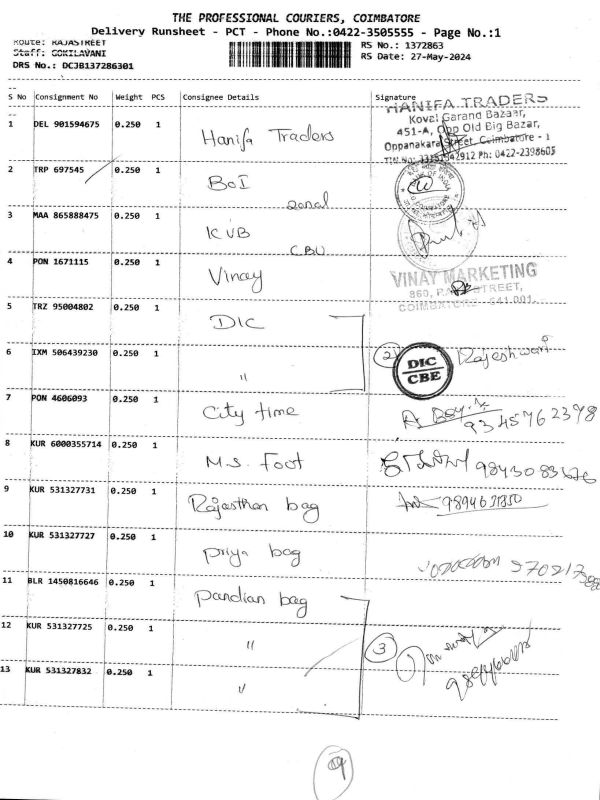 THE PROFESSIONAL COURIERS, COIMBATORE
Delivery Runsheet - PCT - Phone No.:0422-3505555 - Page No.:1
Route: RAJASTREET
Staff: GOKILAVANI
DRS No.: DCJB137286301
RS No.: 1372863
RS Date: 27-May-2024
S No Consignment No Weight PCS Consignee Details Signature
1 DEL 901594675 0.250 1 Hanifa Traders
HANIFA TRADERS
Kovai Garand Bazaar,
451-A, Opp Old Big Bazar,
Oppanakara Street, Coimbatore - 1
Ph: 0422-2398605
2 TRP 697545 0.250 1 BOI
zonal
3 MAA 865888475 0.250 1 KVB
CBU
4 PON 1671115 0.250 1 Vinay
VINAY MARKETING
860, STREET,
COIMBATORE - 641 001.
5 TRZ 95004802 0.250 1 DIC
6 IXM 506439230 0.250 1 "
2 DIC CBE Rajeshwari
7 PON 4606093 0.250 1 City time
9345762398
8 KUR 6000355714 0.250 1 M.S. Foot
9843083676
9 KUR 531327731 0.250 1 Rajasthan bag
10 KUR 531327727 0.250 1 priya bag
11 BLR 1450816646 0.250 1 pandian bag
12 KUR 531327725 0.250 1 "
3
13 KUR 531327832 0.250 1 "